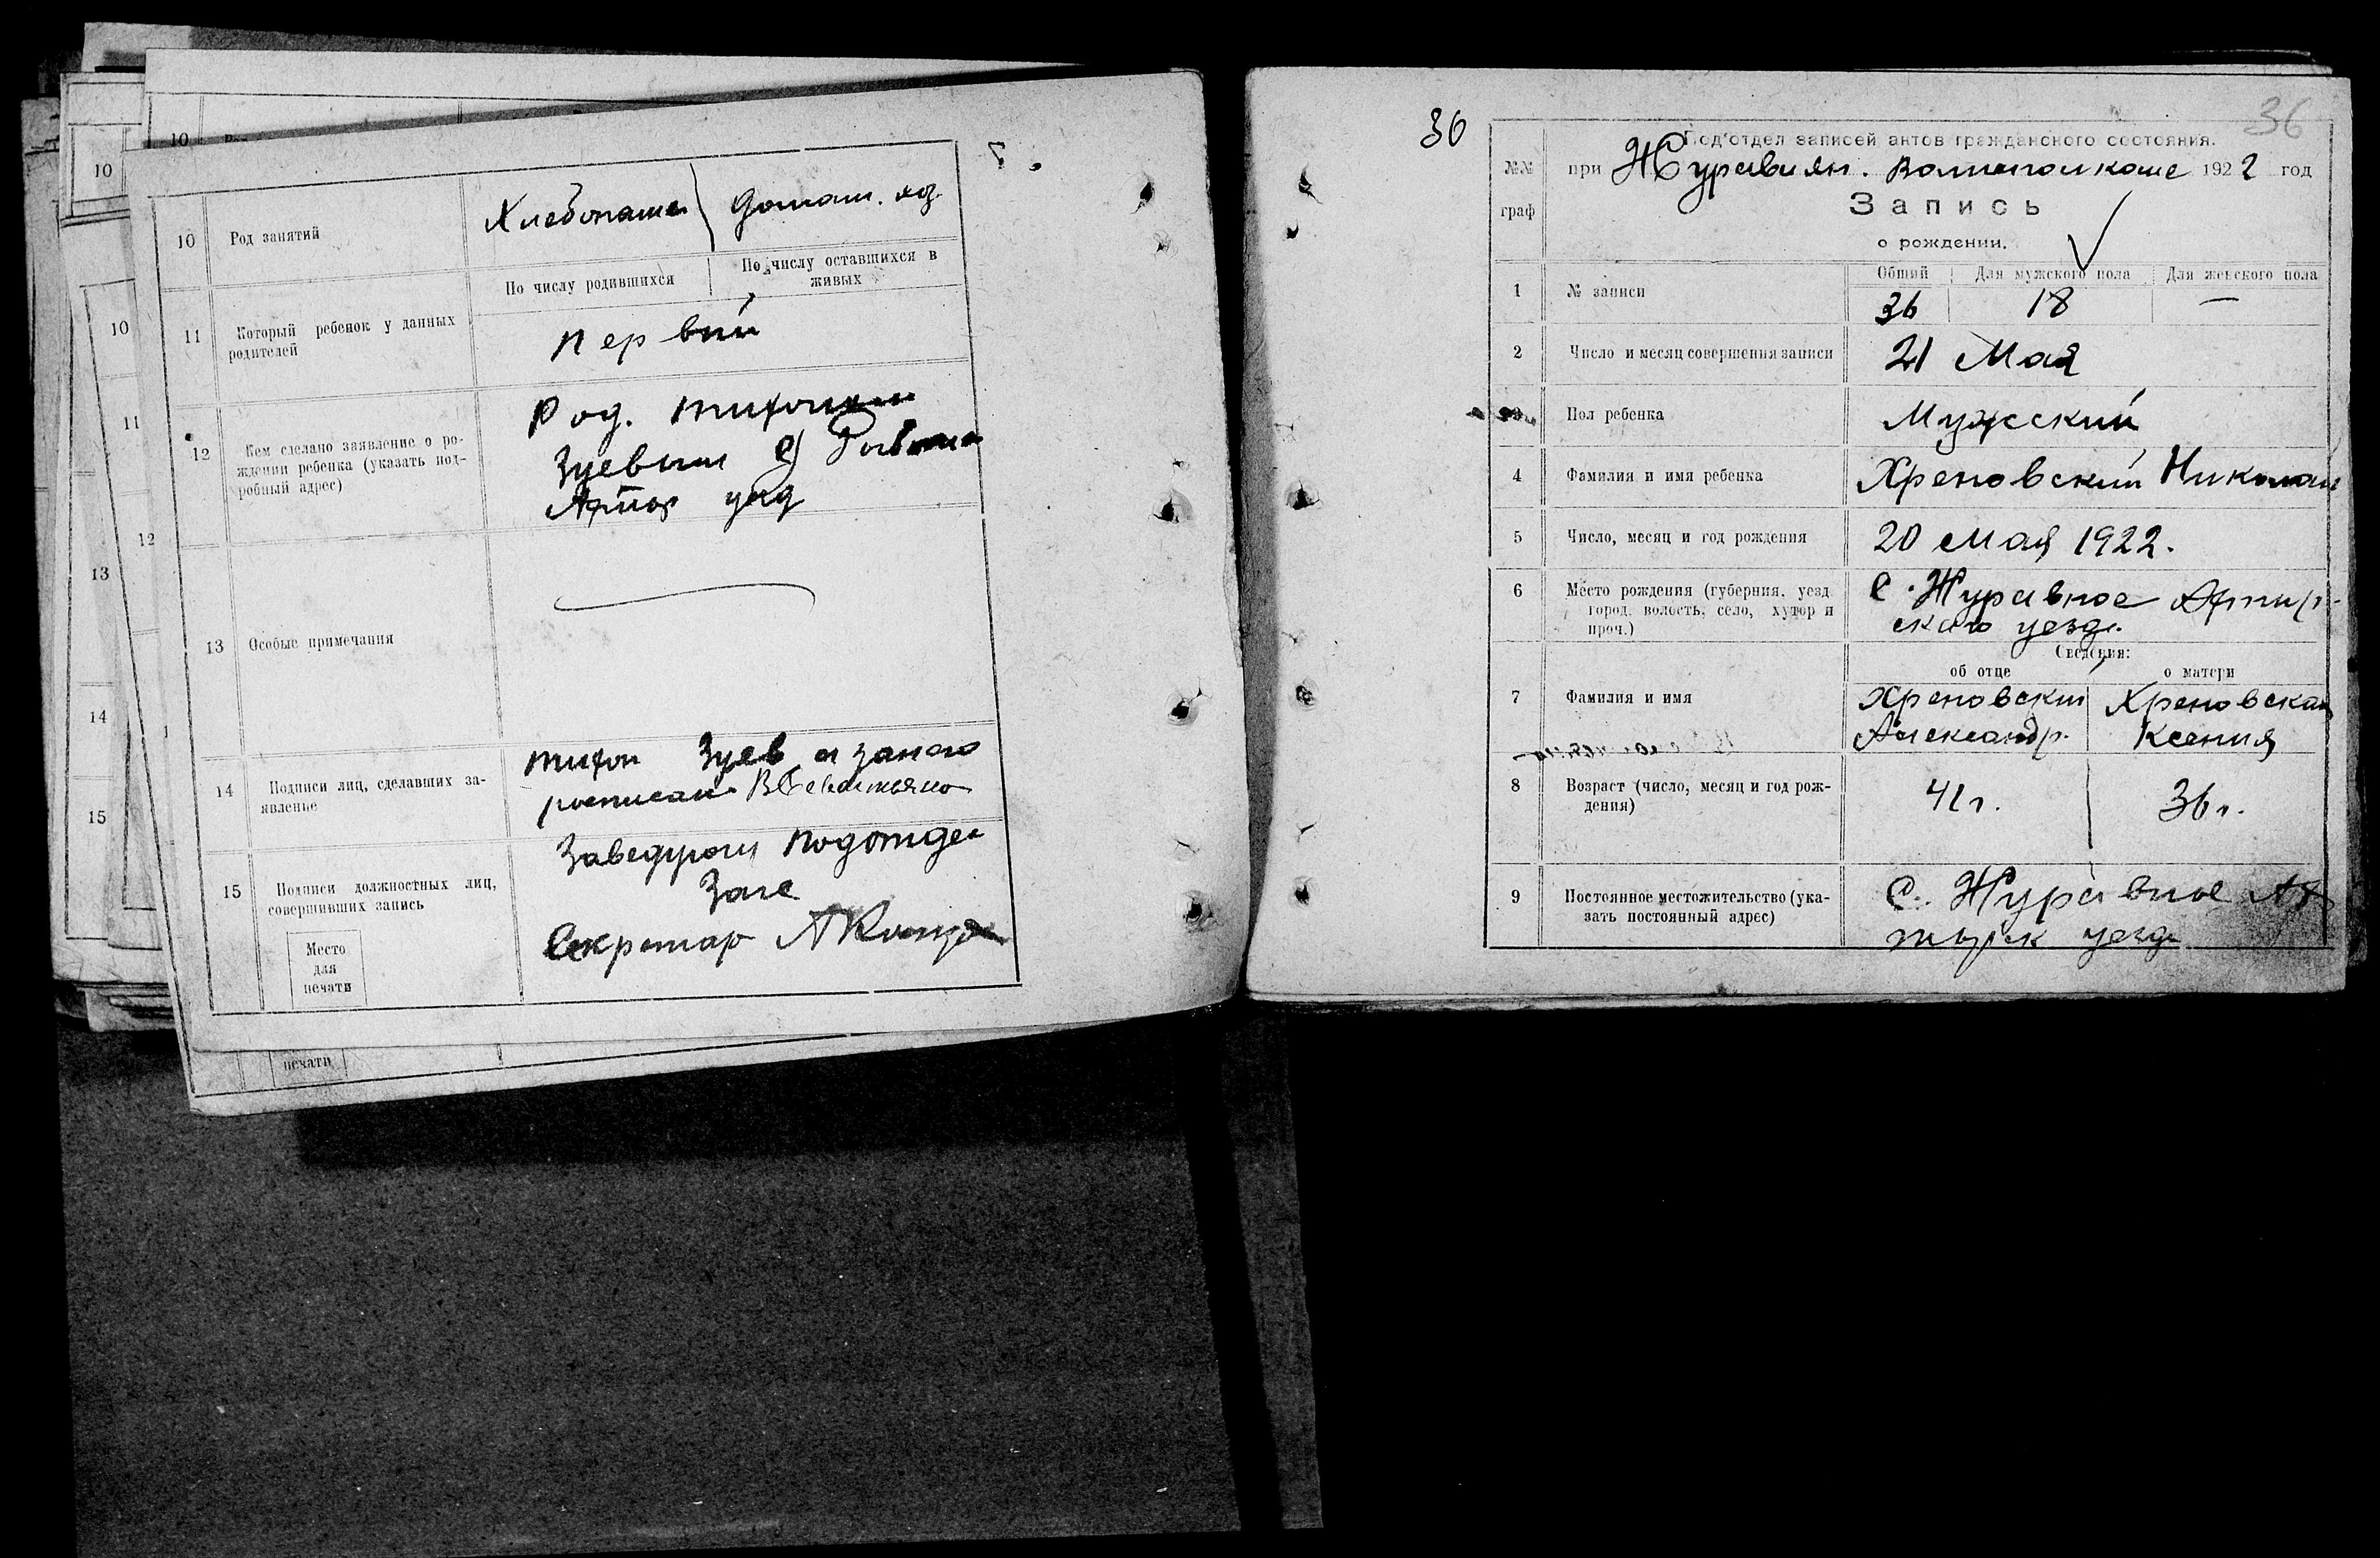 10 Род занятий Хлебопашец домаш. хоз.
По числу родившихся По числу оставшихся в живых
11 Который ребенок у данных родителей
первый
12 Кем сделано заявление о ро-
ждении ребенка (указать под-
робный адрес)
Род. Тихоном
Зуевым с
уезд
13 Особые примечания
14 Подписи лиц, сделавших за-
явленье
Тихон Зуев а за него
росписался
15 Подписи должностных лиц,
совершивших запись
Заведующ Подотдел
Загс
Секретар
Место
для
печати
10
10
10
11
12
13
14
15
печати
36
36
Под'отдел записей актов гражданского состояния.
№№ граф
при Журавлян. Волисполкоме 1922 год
Запись
о рождении.
Общий Для мужского пола Для женского пола
1 № записи 36 18 —
2 Число и месяц совершения записи 21 Мая
Пол ребенка Мужский
4 Фамилия и имя ребенка Хреновский Николай
5 Число, месяц и год рождения 20 Мая 1922.
6 Место рождения (губерния, уезд
город, волость, село, хутор и
проч.)
С. Журавное Ахтыр-
скаго уезд.
Сведения:
об отце о матери
7 Фамилия и имя
Хреновский Хреновская
Александр. Ксения
8 Возраст (число, месяц и год рож-
дения)
41 г. 36 г.
9 Постоянное местожительство (ука-
зать постоянный адрес)
С. Журавное Ах
тырск уезд